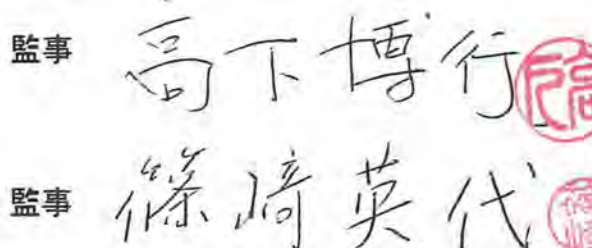 監事 高下博行
監事 篠﨑英代